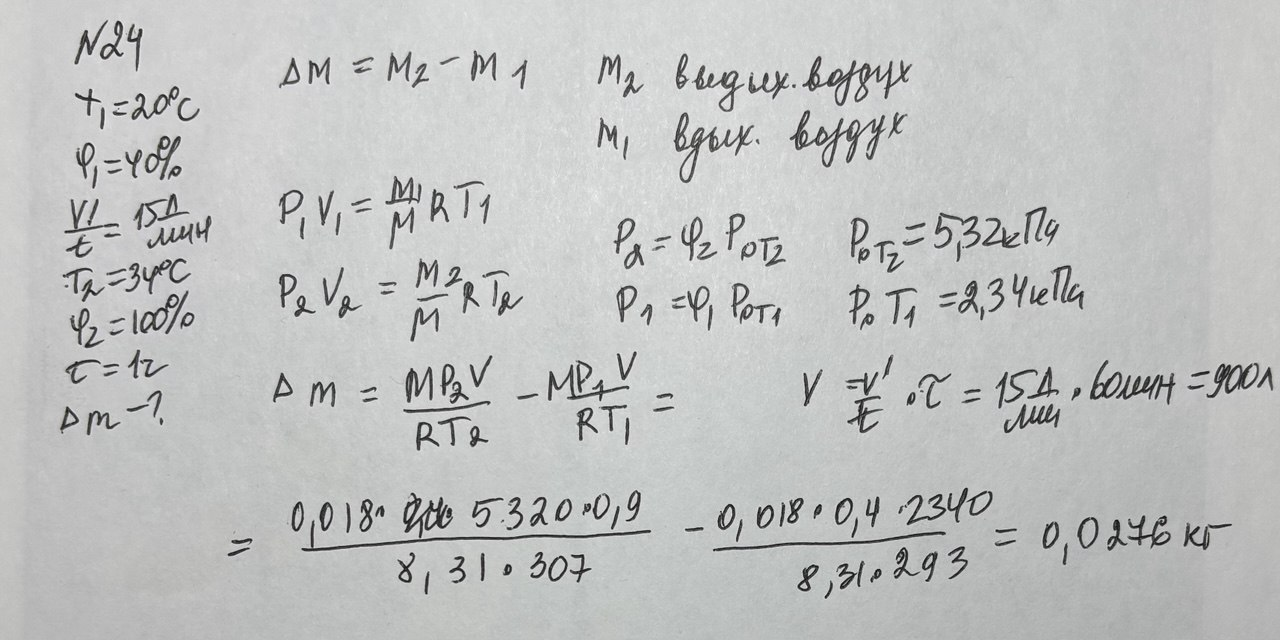 N24
t₁=20°C
φ₁=40%
V'/t = 15 л/мин
T₂=34°C
φ₂=100%
τ=1ч
Δm-?
Δm = m₂ - m₁
m₂ выдых. воздух
m₁ вдых. воздух
P₁V₁ = m₁/M RT₁
P₂V₂ = m₂/M RT₂
P₂ = φ₂ P₀T₂ P₀T₂ = 5,32кПа
P₁ = φ₁ P₀T₁ P₀T₁ = 2,34кПа
Δm = MP₂V/RT₂ - MP₁V/RT₁ =
V = V'/t · τ = 15 л/мин · 60мин = 900л
= 0,018 · 5320 · 0,9/8,31 · 307 - 0,018 · 0,4 · 2340/8,31 · 293 = 0,0276 кг